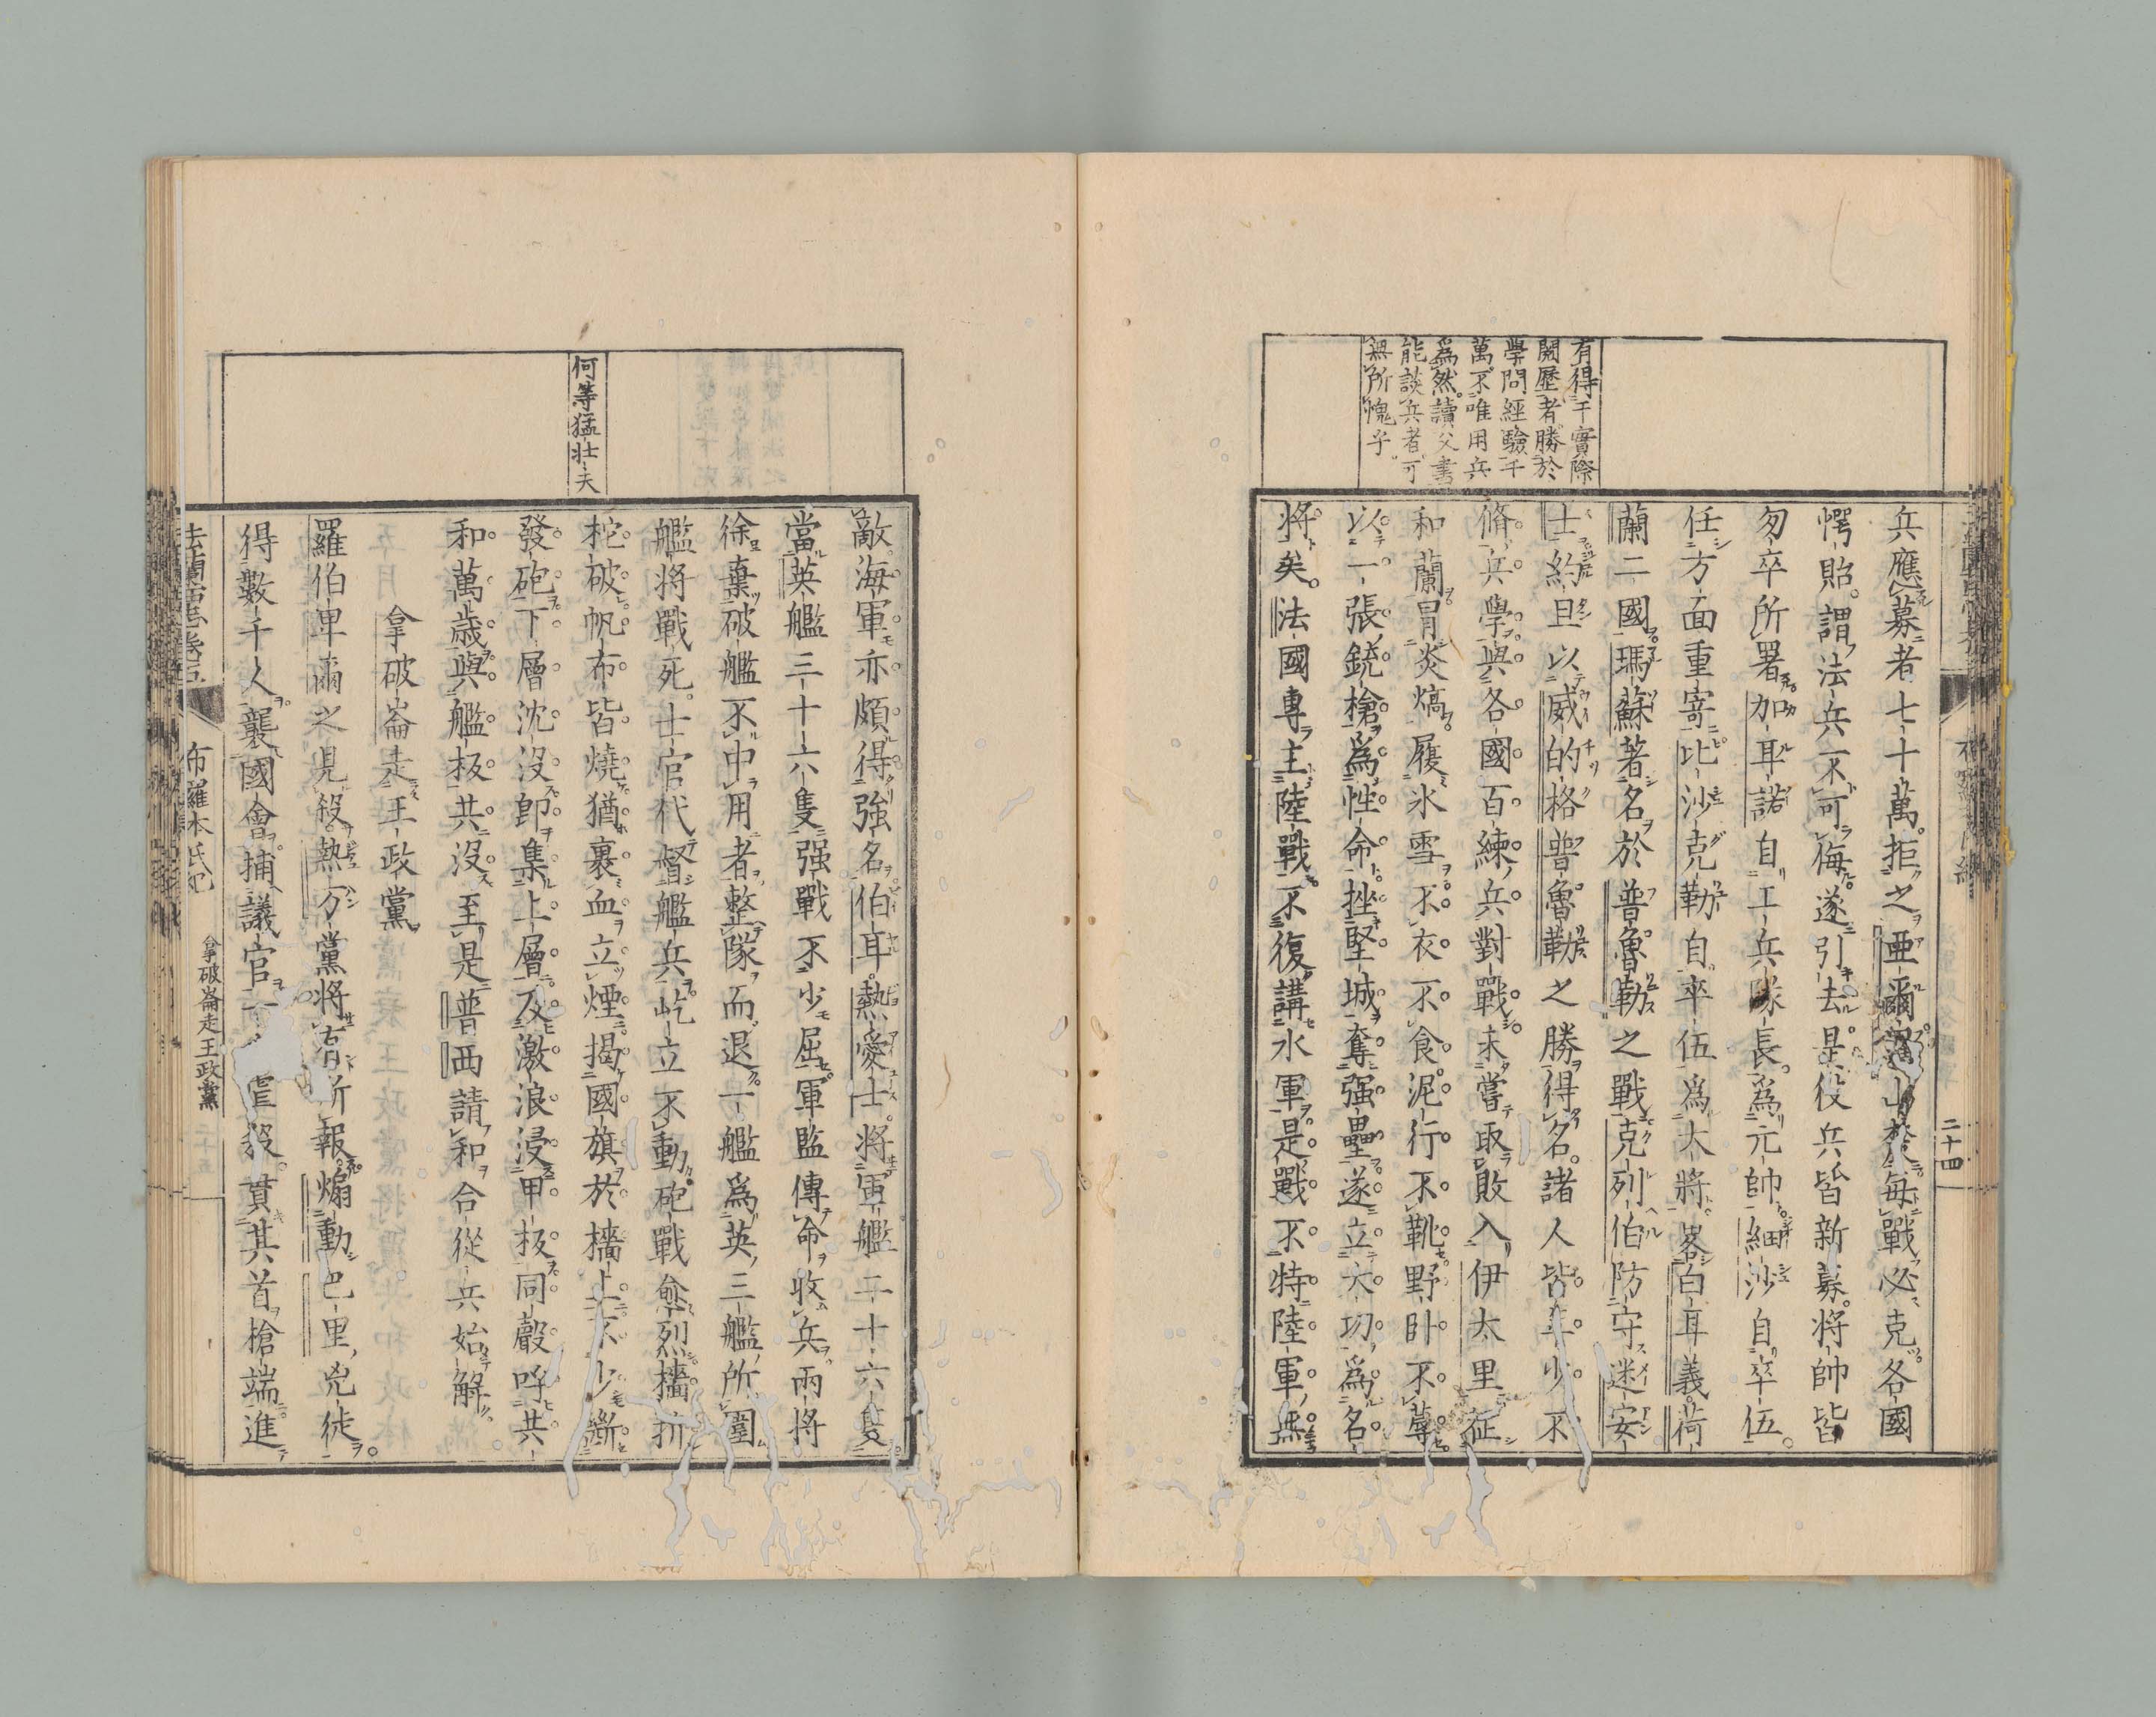 有得于實際
閱歷者勝於
學問經驗千
萬不唯用兵
爲然讀父書
能談兵者可
無所愧乎
兵應募者七十萬拒之亞爾山於每戰必克各國
愕眙謂法兵不可侮遂引去是役兵皆新募將帥皆
匆卒所署加耳諾自工兵隊長爲元帥細沙自卒伍
任方面重寄比沙克勒自卒伍爲大將畧白耳義荷
蘭二國瑪蘇著名於普魯勒之戰克列伯防守迷安
士約且以威的格普魯勒之勝得名諸人皆年少不
脩兵學與各國百練兵對戰未嘗取敗入伊太里征
和蘭冒炎熇履氷雪不衣不食泥行不靴野臥不蓐
以一張銃槍爲性命挫堅城奪强壘遂立大功爲名
將矣法國專主陸戰不復講水軍是戰不特陸軍無
二十四
何等猛壯夫
敵海軍亦頗得強名伯耳熱愛士將軍艦二十六隻
當英艦三十六隻强戰不少屈軍監傳命收兵兩將
徐棄破艦不中用者整隊而退一艦爲英三艦所圍
艦將戰死士官代督艦兵屹立不動砲戰愈烈檣折
柁破帆布皆燒猶裹血立煙揭國旗於檣上不少撕
發砲下層沈沒卽集上層及激浪浸甲板同聲呼共
和萬歲與艦板共沒至是普西請和合從兵始解
拿破崙走王政黨
羅伯卑爾之見殺熱万黨將有所報煽動巴里兇徒
得數千人襲國會捕議官一虐殺貫其首槍端進
法蘭西志卷五
布羅本氏紀
拿破崙走王政黨
二十五